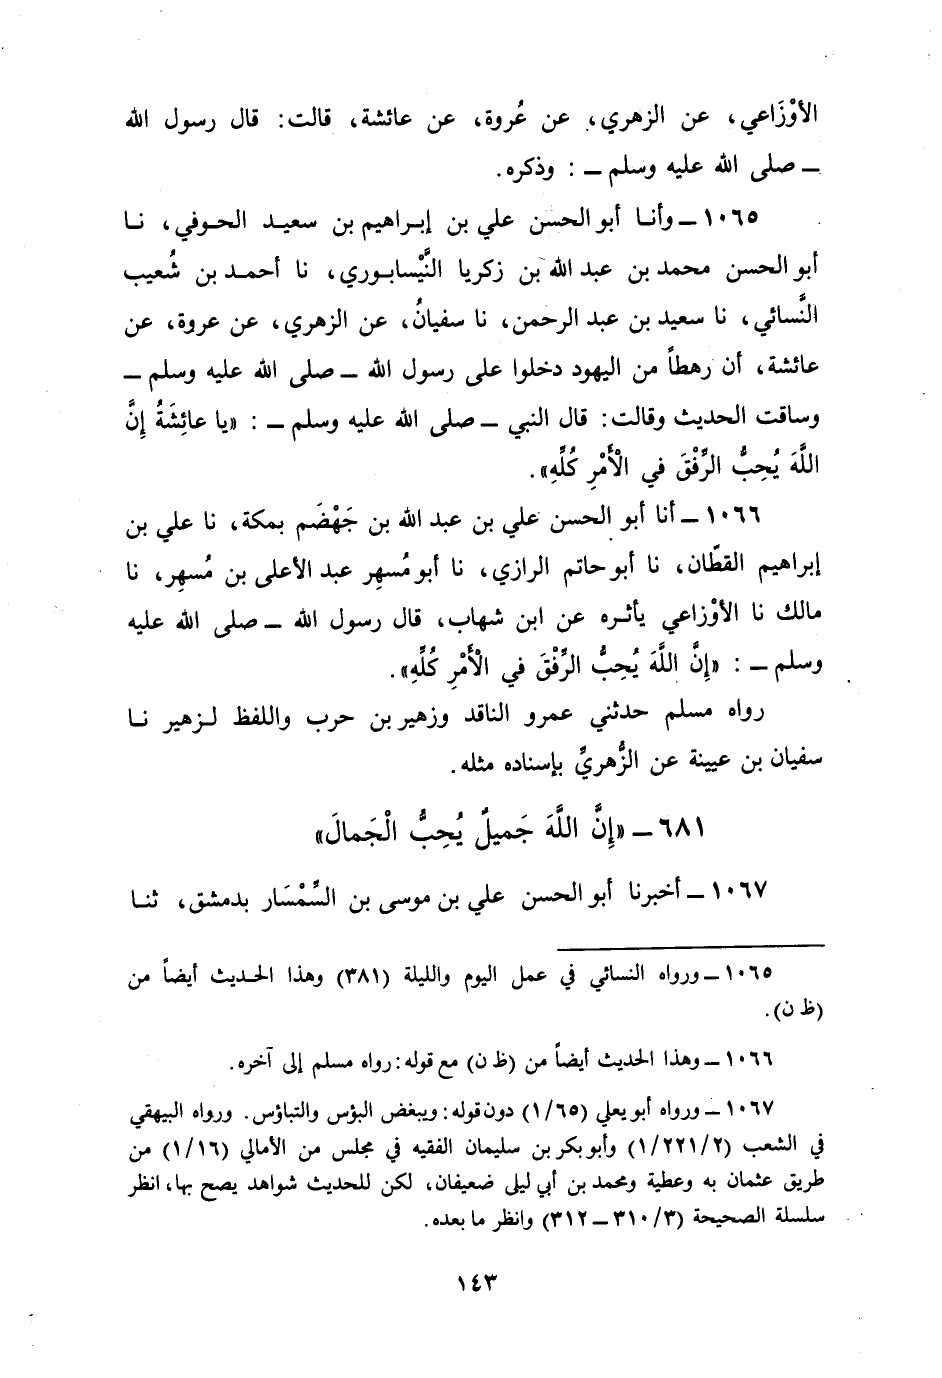 الأوْزَاعي، عن الزهري، عن عُروة، عن عائشة، قالت: قال رسول الله
ــ صلى الله عليه وسلم ــ : وذكره.
١٠٦٥ ــ وأنـا أبو الحسن علي بن إبـراهيم بن سعيـد الحـوفي، نـا
أبو الحسن محمد بن عبد الله بن زكريا النَّيْسابـوري، نا أحمـد بن شُعيب
النَّسائي، نا سعيد بن عبد الرحمن، نا سفيانُ، عن الزهري، عن عروة، عن
عائشة، أن رهطاً من اليهود دخلوا على رسول الله ــ صلى الله عليه وسلم ــ
وساقت الحديث وقالت: قال النبي ــ صلى الله عليه وسلم ــ : «يا عائِشَةُ إِنَّ
اللَّهَ يُحِبُّ الرِّفْقَ في الْأَمْرِ كُلِّهِ».
١٠٦٦ ــ أنا أبو الحسن علي بن عبد الله بن جَهْضَم بمكة، نا علي بن
إبراهيم القطّان، نا أبو حاتم الرازي، نا أبو مُسهِر عبد الأعلى بن مُسهِر، نا
مالك نا الأوْزاعي يأثـره عن ابن شهاب، قال رسول الله ــ صلى الله عليه
وسلم ــ : «إِنَّ اللَّهَ يُحِبُّ الرِّفْقَ في الْأَمْرِ كُلِّهِ».
رواه مسلم حدثني عمرو الناقد وزهير بن حرب واللفظ لـزهير نـا
سفيان بن عيينة عن الزُّهريِّ بإسناده مثله.
٦٨١ ــ «إِنَّ اللَّهَ جَميلٌ يُحِبُّ الْجَمالَ»
١٠٦٧ ــ أخبرنا أبو الحسن علي بن موسى بن السِّمْسَار بدمشق، ثنـا
١٠٦٥ ــ ورواه النسائي في عمل اليوم والليلة (٣٨١) وهذا الحـديث أيضاً من
(ظ ن).
١٠٦٦ ــ وهذا الحديث أيضاً من (ظ ن) مع قوله: رواه مسلم إلى آخره.
١٠٦٧ ــ ورواه أبو يعلى (١/٦٥) دون قوله: ويبغض البؤس والتباؤس. ورواه البيهقي
في الشعب (١/٢٢١/٢) وأبو بكر بن سليمان الفقيه في مجلس من الأمالي (١/١٦) من
طريق عثمان به وعطية ومحمد بن أبي ليلى ضعيفان، لكن للحديث شواهد يصح بها، انظر
سلسلة الصحيحة (٣/٣١٠ ــ ٣١٢) وانظر ما بعده.
١٤٣